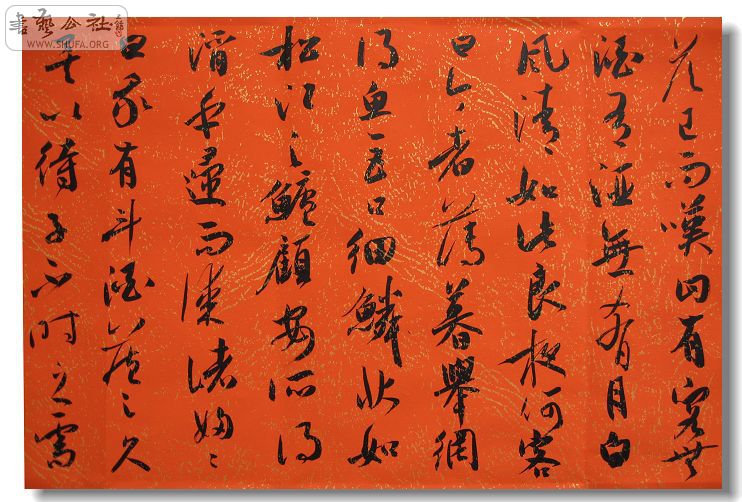 書藝公社
WWW.SHUFA.ORG
答已而嘆曰有客無
酒有酒無肴月白
風清如此良夜何客
曰今者薄暮舉網
得魚巨口細鱗狀如
松江之鱸顧安所得
酒乎歸而謀諸婦〻
曰我有斗酒藏之久
矣以待子不時之需